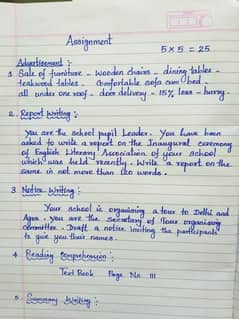 Assignment
5 x 5 = 25
Advertisement :
1. Sale of furniture - wooden chairs - dining tables -
teakwood tables - Comfortable sofa cum bed -
all under one roof - door delivery - 15% less - hurry.
2. Report Writing :
You are the school pupil Leader. You have been
asked to write a report on the Inaugural ceremony
of English Literary Association of your school
which was held recently. Write a report on the
same in not more than 100 words.
3 Notice Writing :
Your school is organising a tour to Delhi and
Agra. You are the secretary of Tour organising
committee. Draft a notice inviting the participants
to give you their names.
4 Reading Comprehension :
Text Book Page No 111
5 Summary Writing :